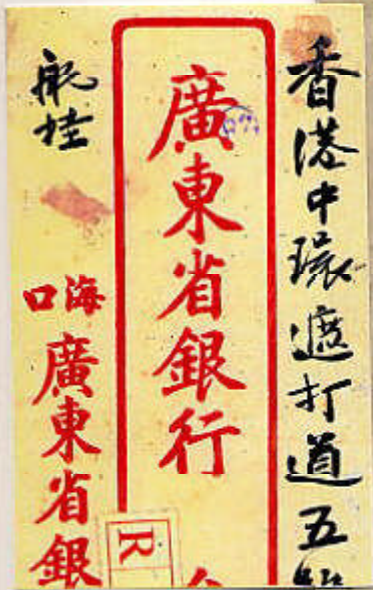 香港中環遮打道五號
廣東省銀行
航挂
海口
廣東省銀
R